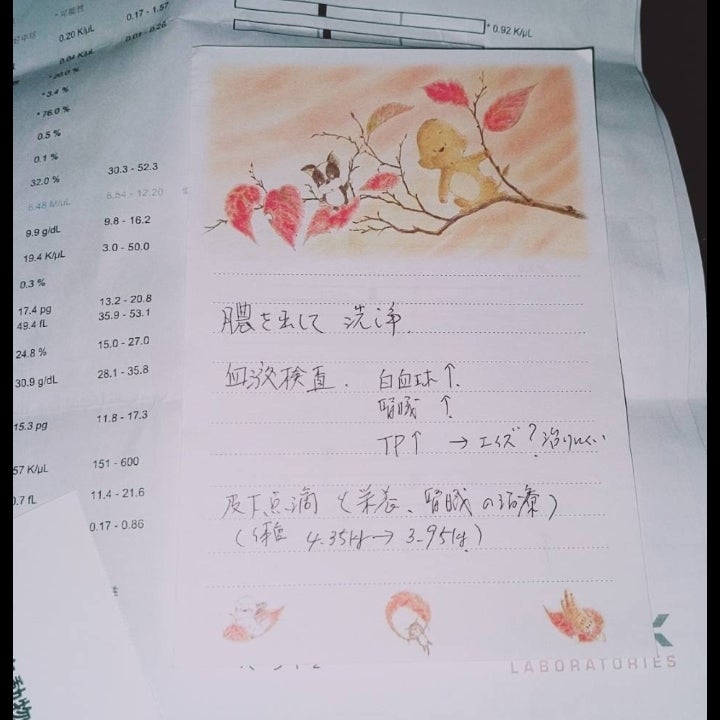 *可能性
0.17 - 1.57
0.20 K/µL
0.04 K/µL
0.01 - 0.26
* 0.92 K/µL
*3.4 %
*76.0 %
0.5 %
0.1 %
32.0 %
30.3 - 52.3
6.48 M/µL
6.54 - 12.20
9.9 g/dL
9.8 - 16.2
19.4 K/µL
3.0 - 50.0
0.3 %
17.4 pg
13.2 - 20.8
49.4 fL
35.9 - 53.1
24.8 %
15.0 - 27.0
30.9 g/dL
28.1 - 35.8
15.3 pg
11.8 - 17.3
57 K/µL
151 - 600
0.7 fL
11.4 - 21.6
0.17 - 0.86
膿を出して 洗浄.
血液検査. 白血球↑.
腎臓 ↑
TP↑ → エイズ? 治りにくい
皮下点滴 (栄養、腎臓の治療)
(体重 4.35kg → 3.95kg)
LABORATORIES
動物